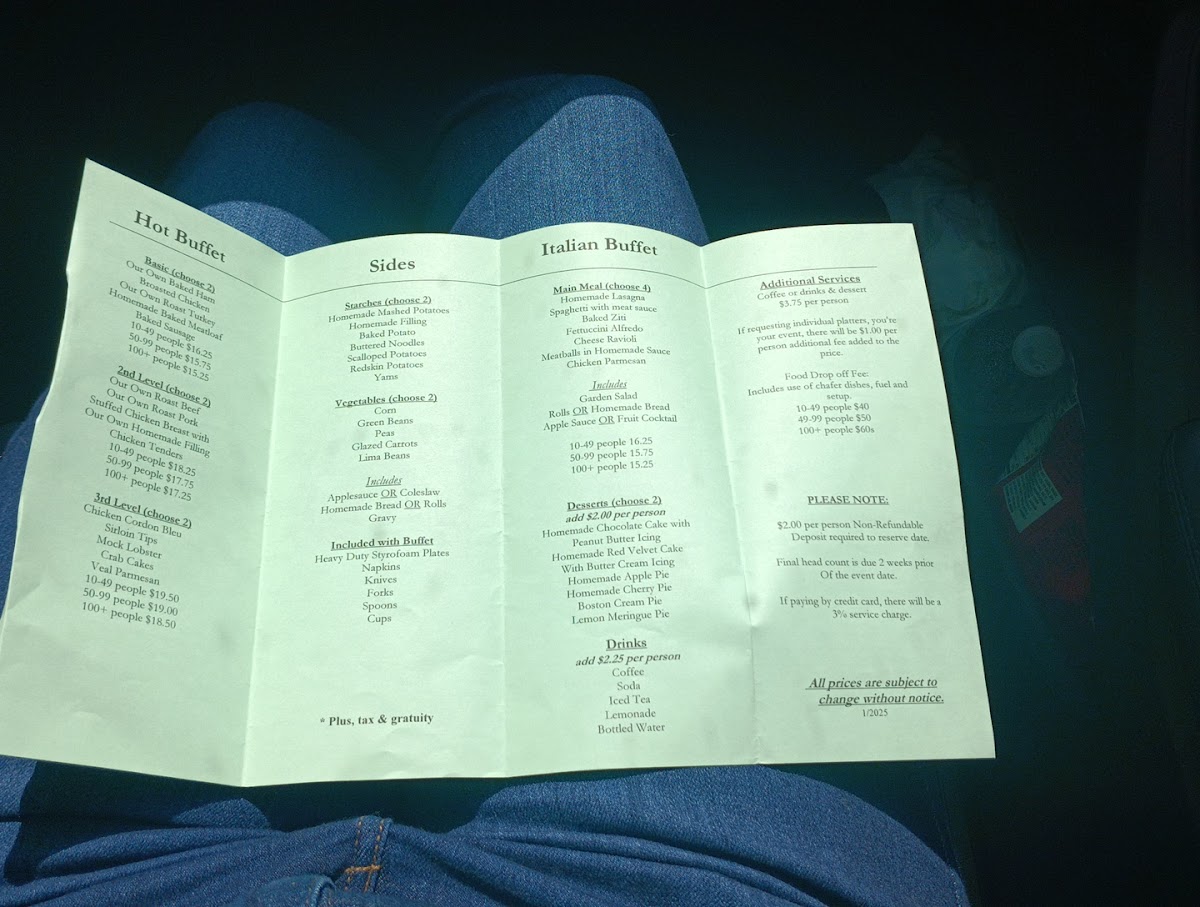 Hot Buffet
Basic (choose 2)
Our Own Baked Ham
Broasted Chicken
Our Own Roast Turkey
Homemade Baked Meatloaf
Baked Sausage
10-49 people $16.25
50-99 people $15.75
100+ people $15.25
2nd Level (choose 2)
Our Own Roast Beef
Our Own Roast Pork
Stuffed Chicken Breast with
Our Own Homemade Filling
Chicken Tenders
10-49 people $18.25
50-99 people $17.75
100+ people $17.25
3rd Level (choose 2)
Chicken Cordon Bleu
Sitloin Tips
Mock Lobster
Crab Cakes
Veal Parmesan
10-49 people $19.50
50-99 people $19.00
100+ people $18.50
Sides
Starches (choose 2)
Homemade Mashed Potatoes
Homemade Filling
Baked Potato
Buttered Noodles
Scalloped Potatoes
Redskin Potatoes
Yams
Vegetables (choose 2)
Corn
Green Beans
Peas
Glazed Carrots
Lima Beans
Includes
Applesauce OR Coleslaw
Homemade Bread OR Rolls
Gravy
Included with Buffet
Heavy Duty Styrofoam Plates
Napkins
Knives
Forks
Spoons
Cups
* Plus, tax & gratuity
Italian Buffet
Main Meal (choose 4)
Homemade Lasagna
Spaghetti with meat sauce
Baked Ziti
Fettuccini Alfredo
Cheese Ravioli
Meatballs in Homemade Sauce
Chicken Parmesan
Includes
Garden Salad
Rolls OR Homemade Bread
Apple Sauce OR Fruit Cocktail
10-49 people 16.25
50-99 people 15.75
100+ people 15.25
Desserts (choose 2)
add $2.00 per person
Homemade Chocolate Cake with
Peanut Butter Icing
Homemade Red Velvet Cake
With Butter Cream Icing
Homemade Apple Pie
Homemade Cherry Pie
Boston Cream Pie
Lemon Meringue Pie
Drinks
add $2.25 per person
Coffee
Soda
Iced Tea
Lemonade
Bottled Water
Additional Services
Coffee or drinks & dessert
$3.75 per person
If requesting individual platters, you're
your event, there will be $1.00 per
person additional fee added to the
price.
Food Drop off Fee:
Includes use of chafer dishes, fuel and
setup.
10-49 people $40
49-99 people $50
100+ people $60s
PLEASE NOTE:
$2.00 per person Non-Refundable
Deposit required to reserve date.
Final head count is due 2 weeks prior
Of the event date.
If paying by credit card, there will be a
3% service charge.
All prices are subject to
change without notice.
1/2025